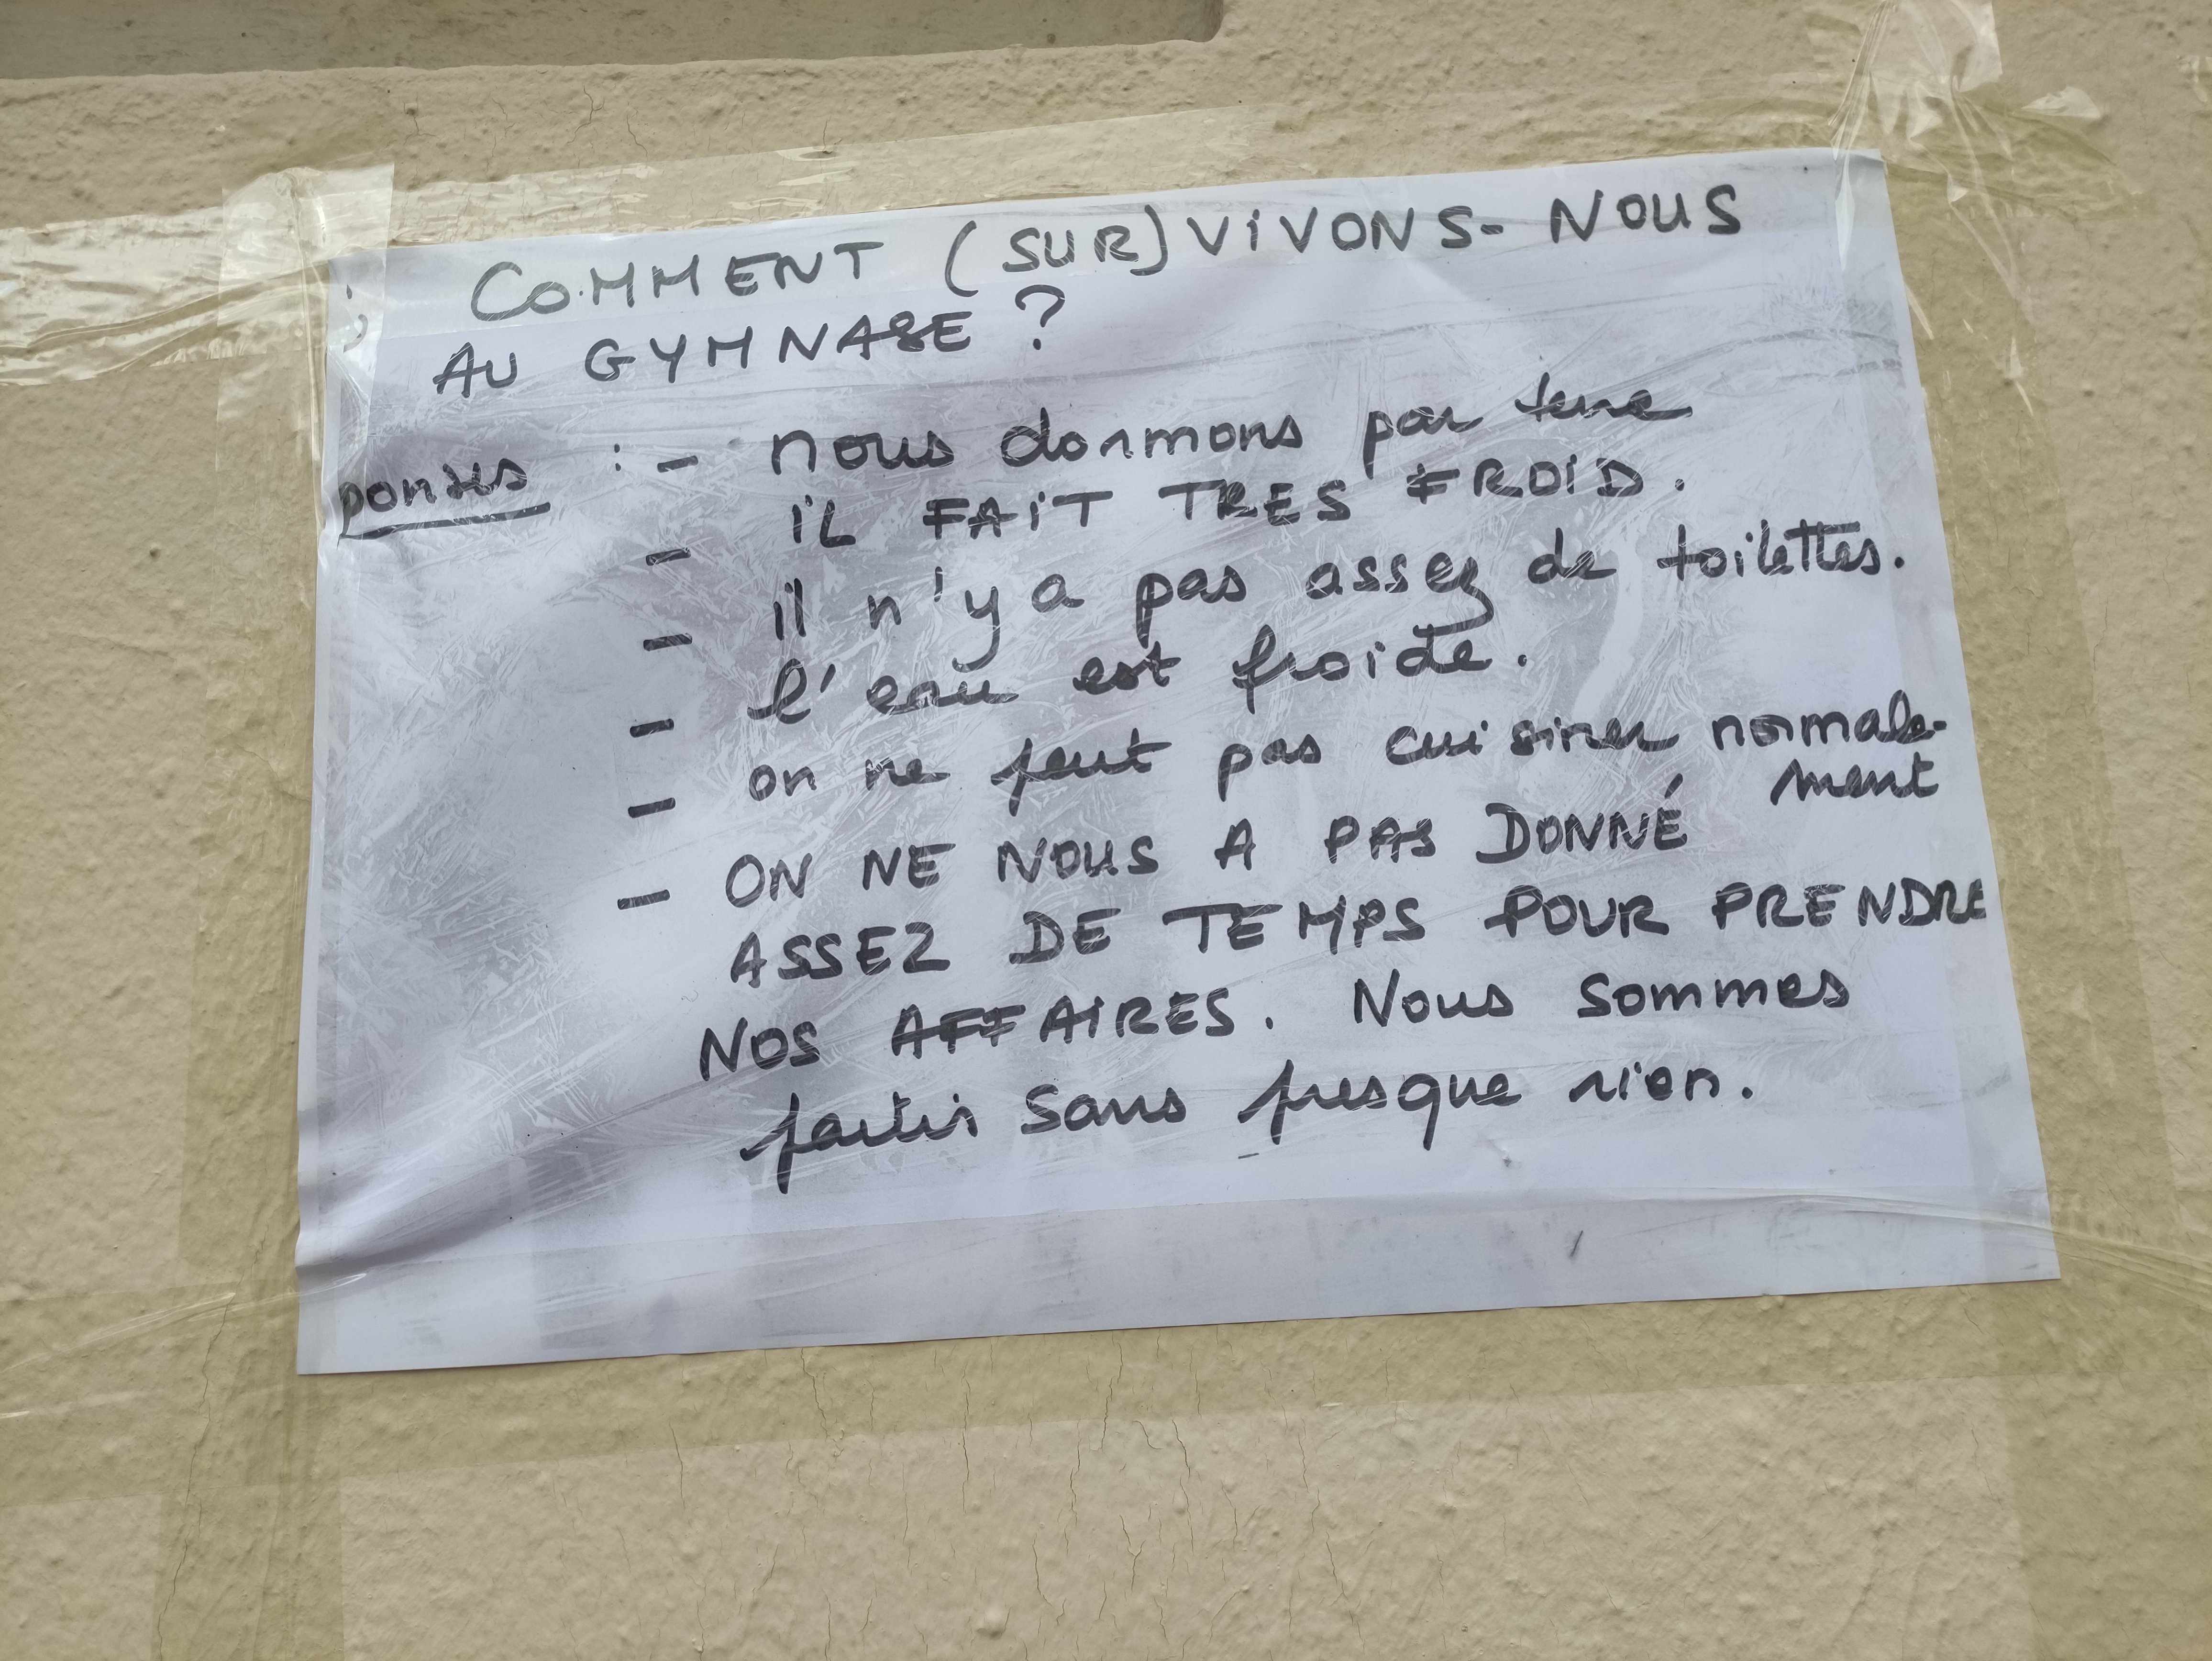 : COMMENT (SUR)VIVONS-NOUS
AU GYMNASE ?
ponses : - nous dormons par terre
- IL FAIT TRES FROID.
- il n'y a pas assez de toilettes.
- l'eau est froide.
- on ne peut pas cuisiner normale-
ment
- ON NE NOUS A PAS DONNÉ
ASSEZ DE TEMPS POUR PRENDRE
NOS AFFAIRES. Nous sommes
partis sans presque rien.